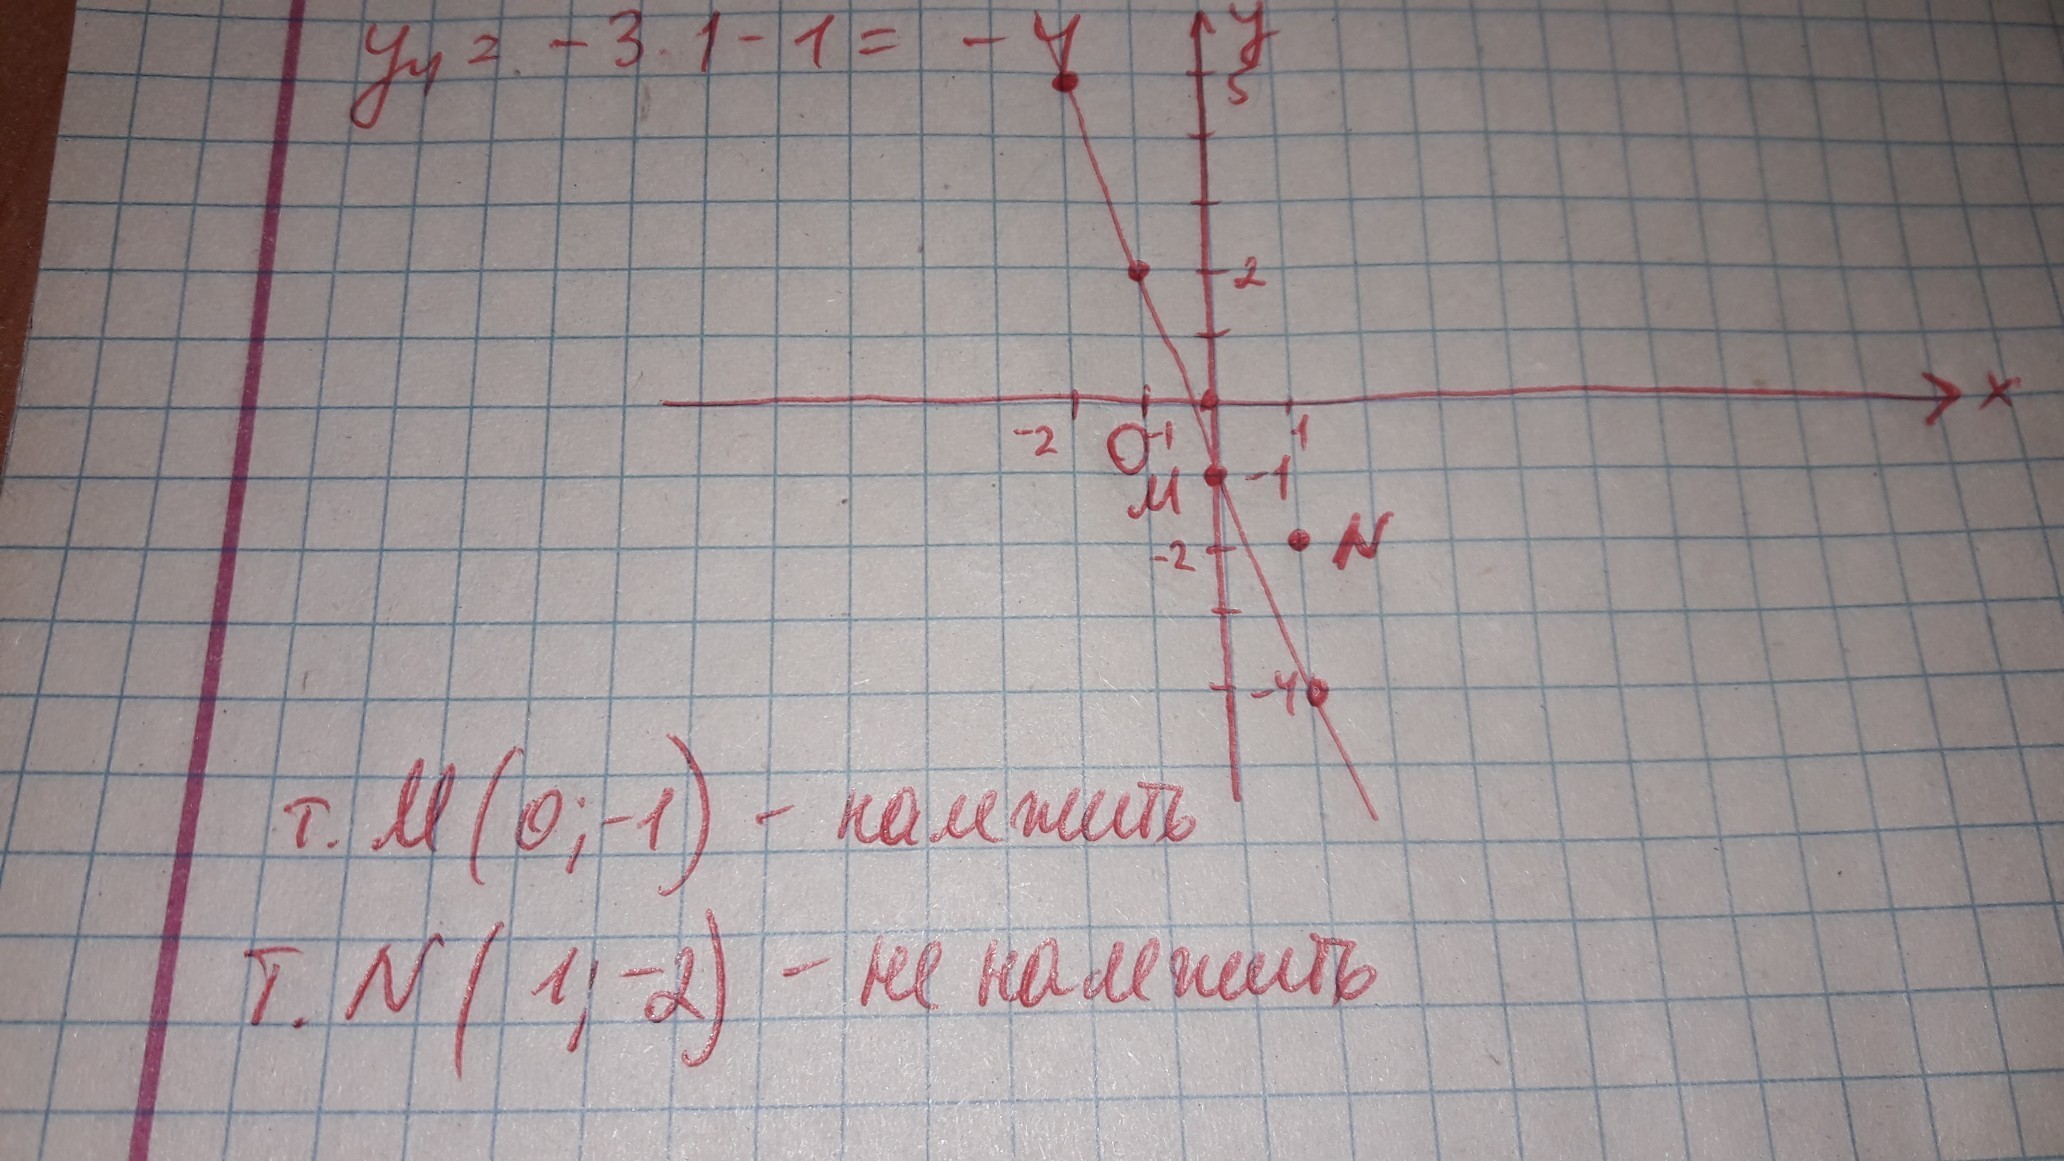 y₄ = -3·1-1 = -4
y
5
2
x
-2 O -1 1
M -1
-2 N
-4
т. M(0;-1) - належить
т. N(1;-2) - не належить